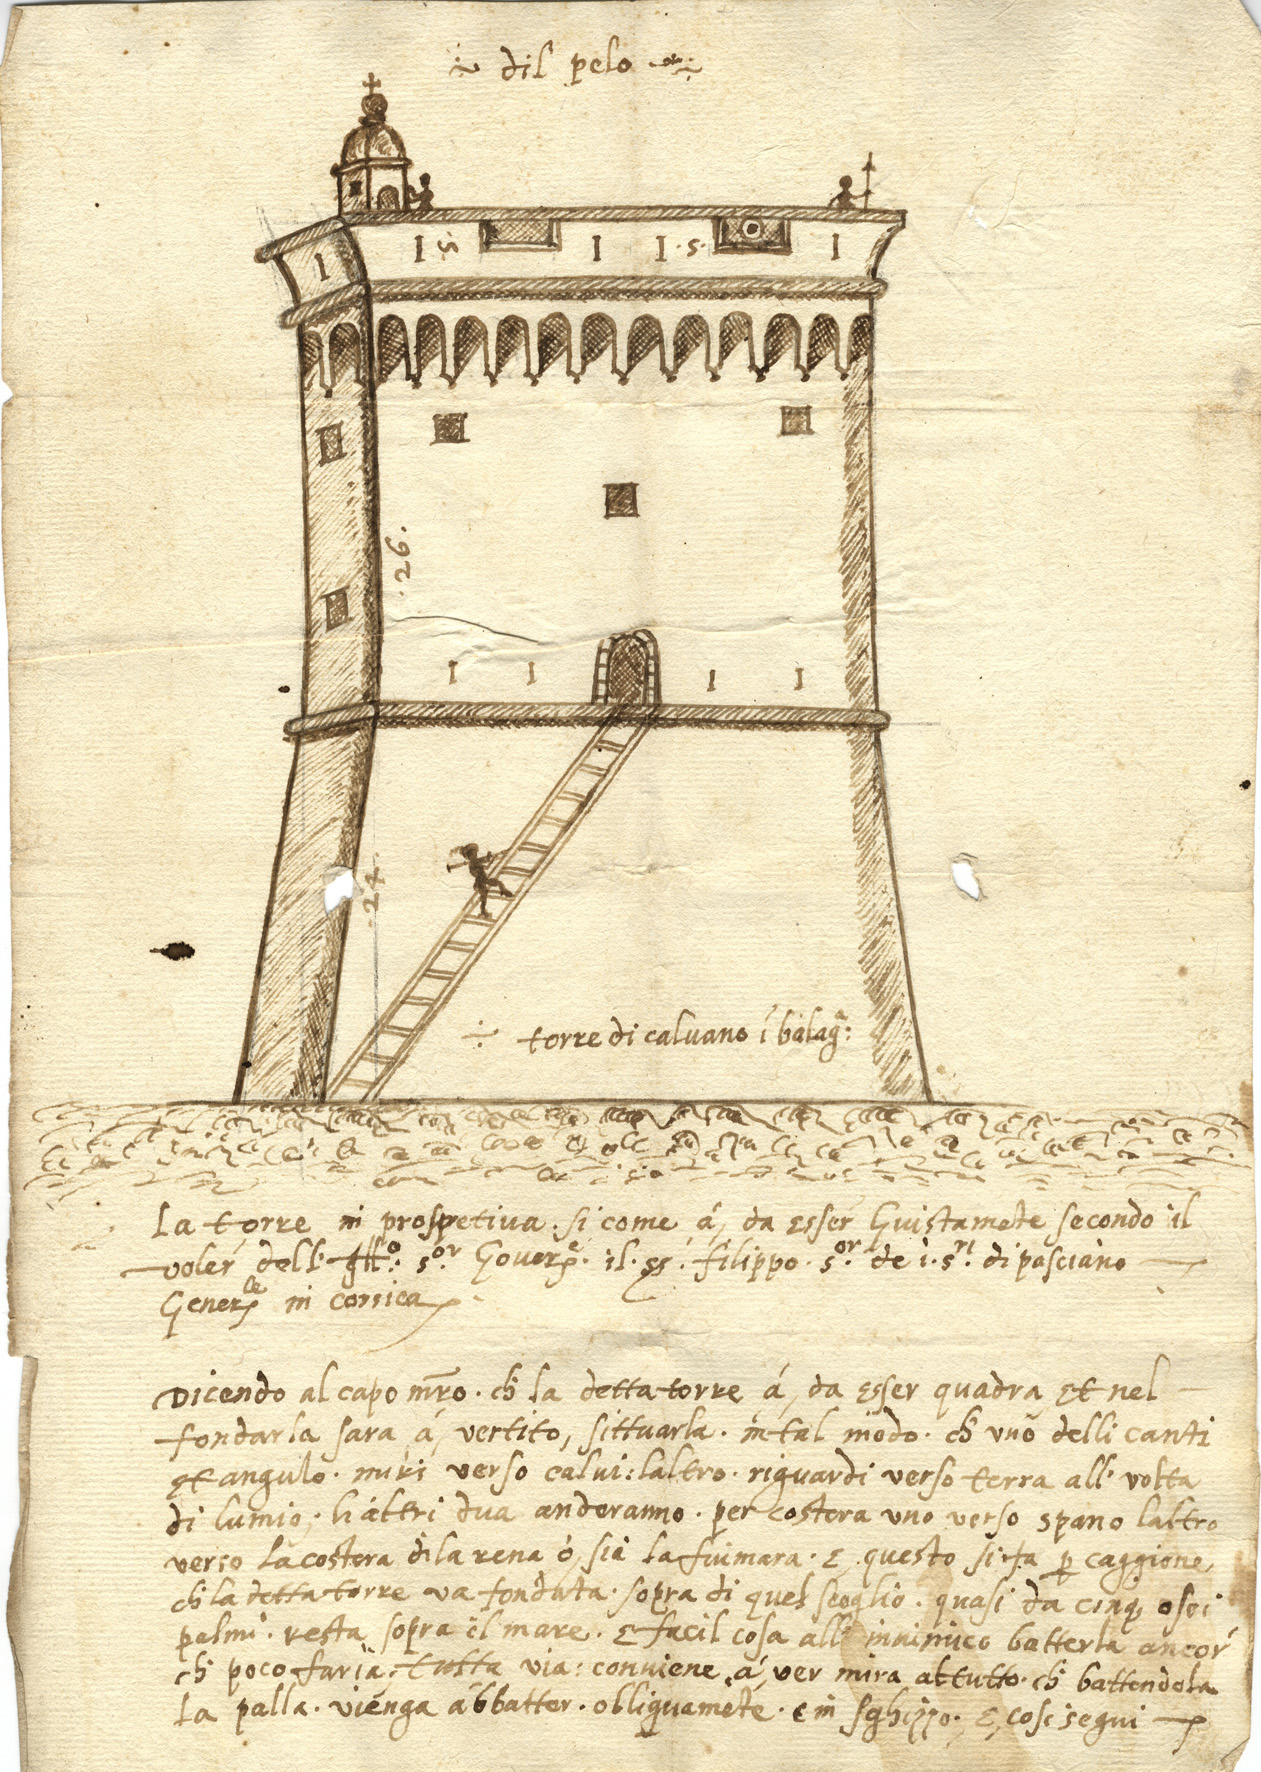 dil pelo
I S I I .S. I
I
.26.
I I I I
.24
torre di caluano ĩ balag̃:
La torre in prospetiua . si come á, da Esser Guistamẽte secondo il
voler dell. Ill.º: s.or Gouer.e il . ss . filippo . s.or de i . s.ri di pasciano
Gener.le in corsica
Dicendo al capo mr̃o . ch̃ la detta torre á, da Esser quadra, Et nel
fondarla sara á, vertito, sittuarla . in tal modo . ch̃ vño delli canti
Et angulo . miri verso calui : laltro . riguardi verso terra all. volta
di lumio ; li altri dua anderanno . per costera uno verso spano laltro
verso la costera dila rena ó, sia la fiumara . E, questo si fa p caggione,
ch̃ la detta torre va fondata . sopra di quel scoglio . quasi da cinq, o sei
palmi . resta sopra il mare . E facil cosa all inimico batterla ancor
ch̃ poco faria . tutta via : conuiene á, ver mira al tutto . ch̃ battendola
La palla . vienga á bbatter . obliquamẽte . E in sghippo . E, cosi segui